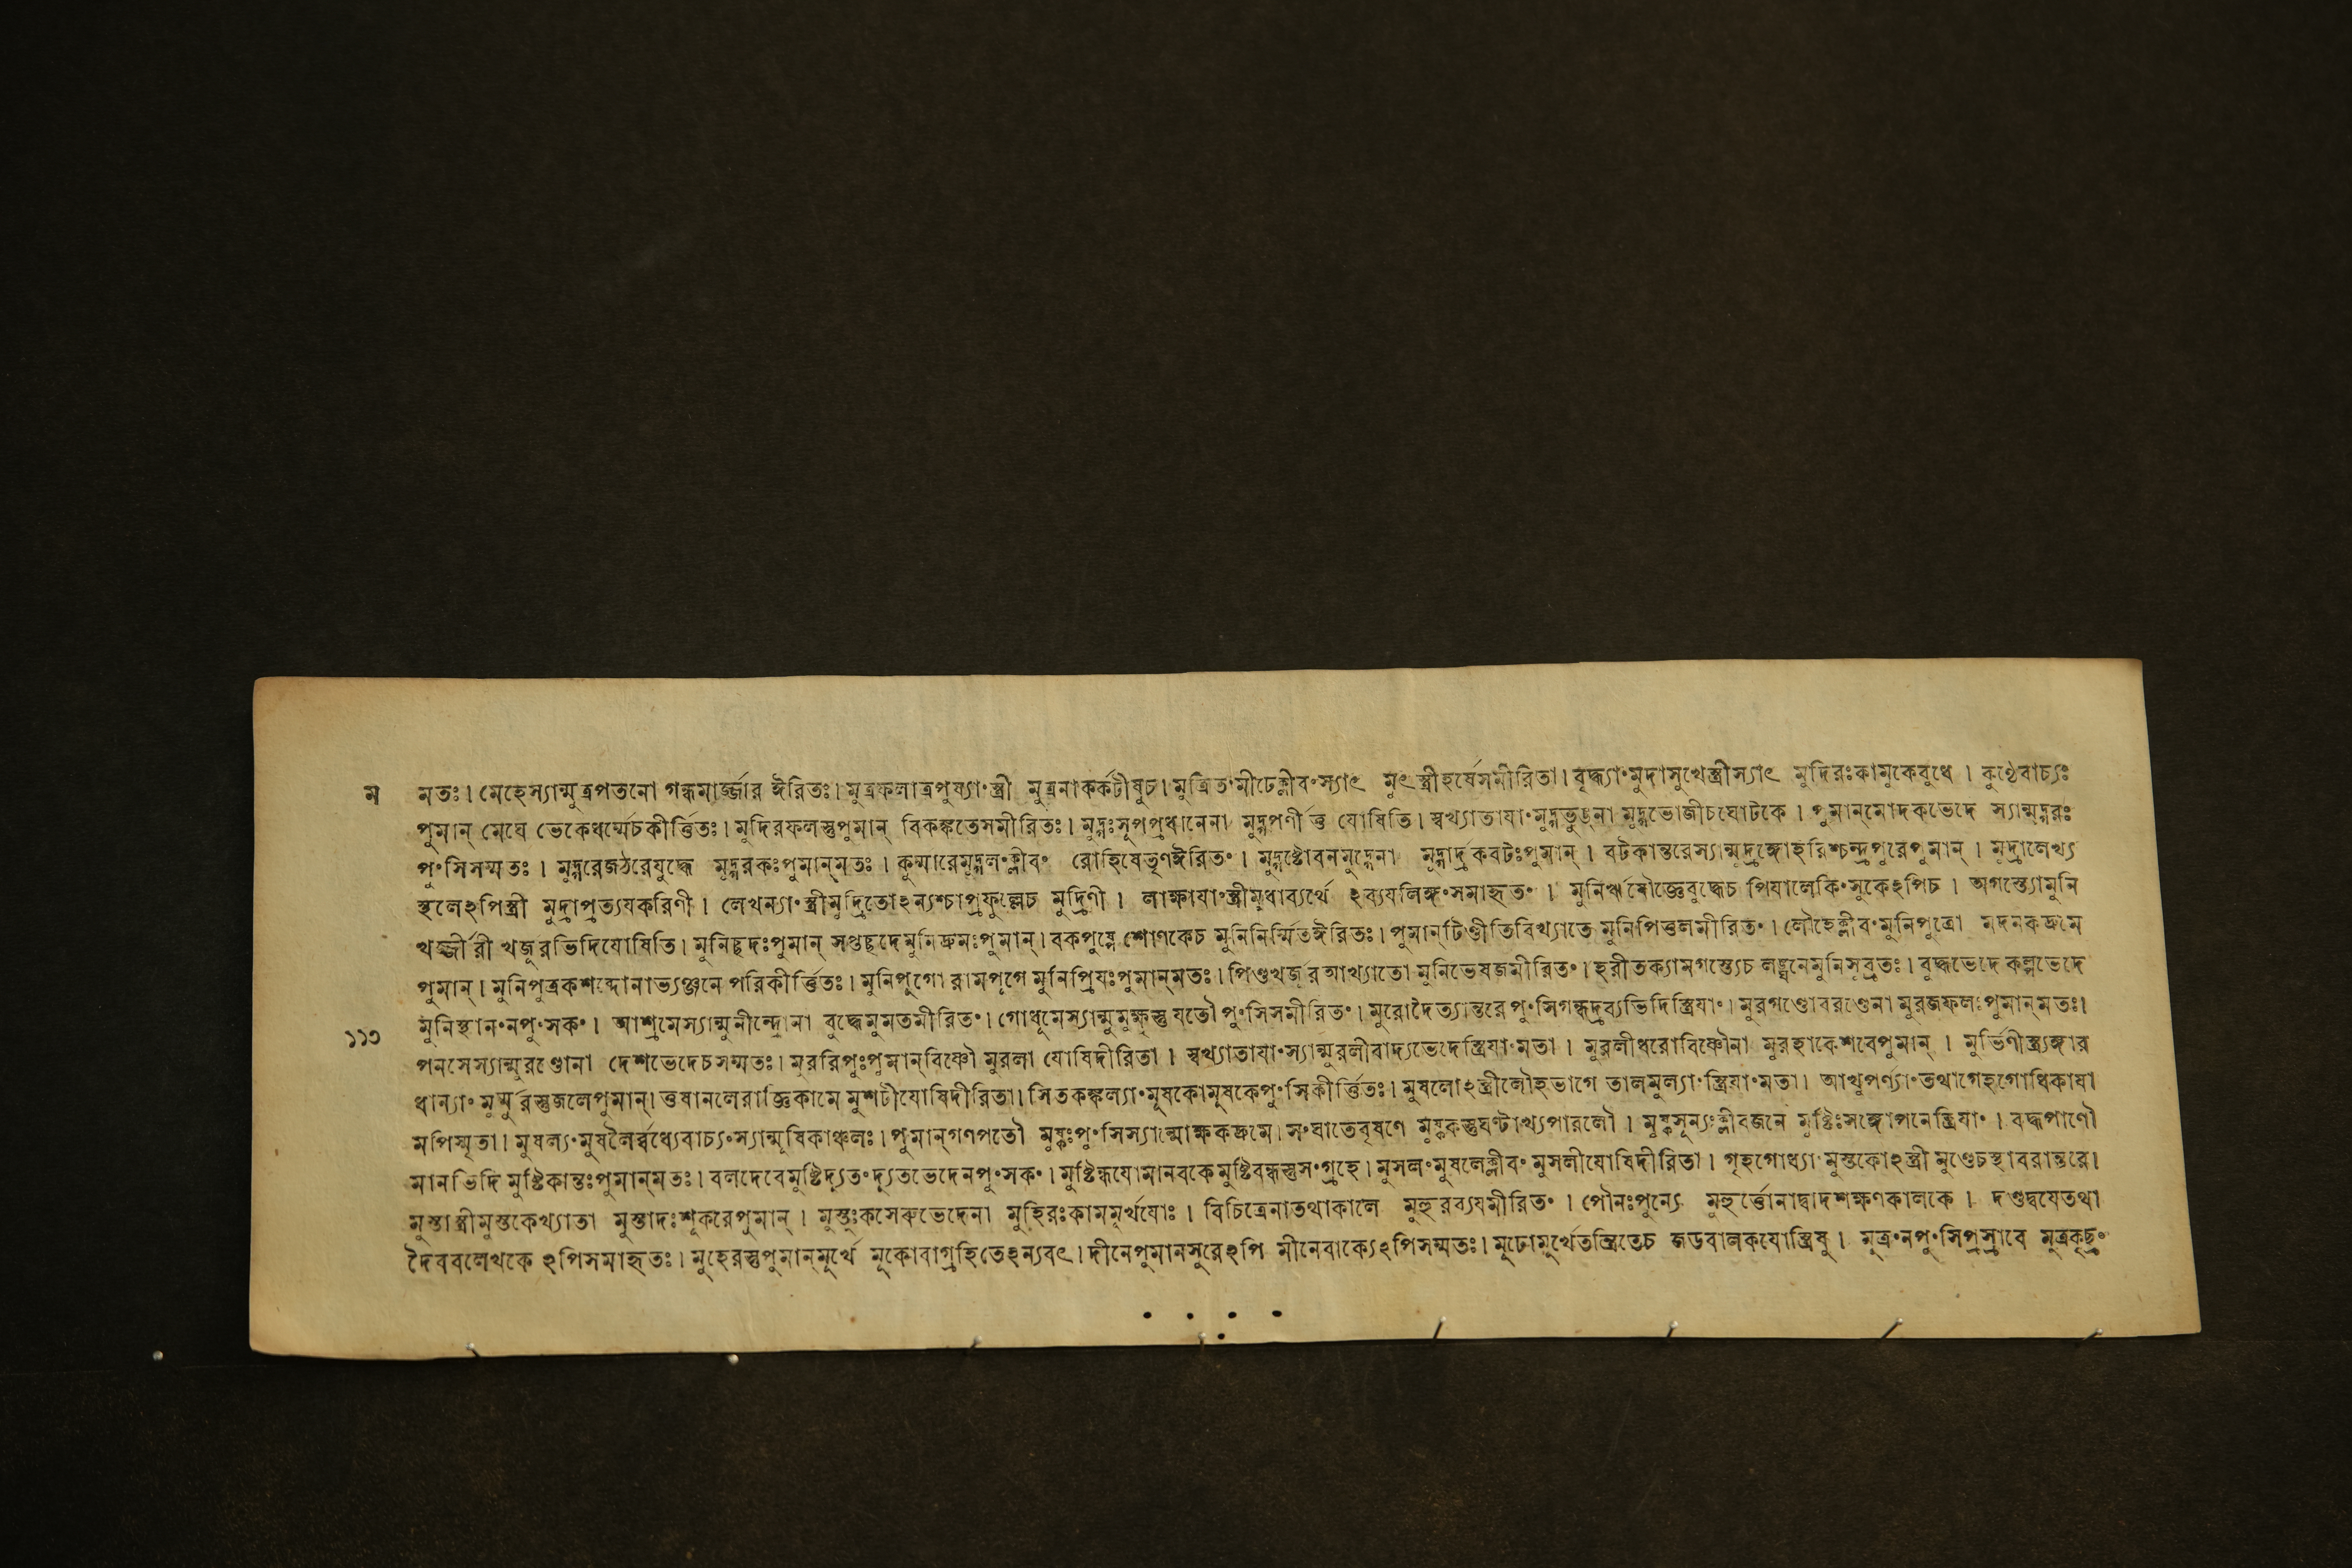 ম মতঃ। মেহেস্যান্মুত্রপতনো গন্ধমার্জ্জার ঈরিতঃ। মুত্রফলাত্রপুষ্যা॰স্ত্রী মুত্রনাকর্কটীষুচ। মুত্রিত॰মীঢেক্লীব॰স্যাৎ মুৎস্ত্রীহর্ষেসমীরিতা। বৃদ্ধ্যা॰মুদাসুখেস্ত্রীস্যাৎ মুদিরঃকামুকেবুধে । কুণ্ঠেবাচ্যঃ
পুমান্ মেঘে ভেকেধর্ম্মেচকীর্ত্তিতঃ। মুদিরফলস্তুপুমান্ বিকঙ্কতেসমীরিতঃ। মুদ্গঃসূপপ্রধানেনা মুদ্গপর্ণীতু যোষিতি। স্বখ্যাতাযা॰মুদ্গভুঙ্না মুদ্গভোজীচঘোটকে । পুমান্মোদকভেদে স্যান্মুদ্গরঃ
পু॰সিসম্মতঃ । মুদ্গরেজঠরেযুদ্ধে মুদ্গরকঃপুমান্মতঃ । কুম্মারেমুদ্গল॰ক্লীব॰ রোহিষেতৃণঈরিত॰ । মুদ্গষ্টোবনমুদ্গেনা মুদ্গার্দ্রকবটঃপুমান্ । বটকান্তরেস্যান্মুদ্রঙ্গোহরিশ্চন্দ্রপুরেপুমান্ । মুদ্রালেখ্য
স্থলেঽপিস্ত্রী মুদ্রাপ্রত্যযকরিণী । লেখন্যা॰স্ত্রীমুদ্রিতোঽন্যশ্চাপ্রফুল্লেচ মুদ্রিণী । লাক্ষাযা॰স্ত্রীমুধাব্যর্থে ঽব্যযলিঙ্গ॰সমাহৃত॰ । মুনিঋষৌজ্ঞেবুদ্ধেচ পিযালেকি॰সুকেঽপিচ । অগস্ত্যোমুনি
খর্জ্জীরী খজূরভিদিযোষিতি। মুনিচ্ছদঃপুমান্ সপ্তচ্ছদেমুনিদ্রুমঃপুমান্। বকপুষ্পে শোণকেচ মুনিনির্ম্মিতঈরিতঃ। পুমান্টিণ্ডীতিবিখ্যাতে মুনিপিত্তলমীরিত॰। লৌহেক্লীব॰মুনিপুত্রো মদনকদ্রুমে
পুমান্। মুনিপুত্রকশব্দোনাভ্যঞ্জনে পরিকীর্ত্তিতঃ। মুনিপুগো রামপূগে মুনিপ্রিযঃপুমান্মতঃ। পিণ্ডখর্জূর আখ্যাতো মুনিভেষজমীরিত॰। হরীতক্যামগস্ত্যেচ লঙ্ঘনেমুনিসুব্রতঃ। বুদ্ধভেদে কল্পভেদে
মুনিস্থান॰নপু॰সক॰। আশ্রমেস্যান্মুনীন্দ্রোনা বুদ্ধেমুমতমীরিত॰। গোধূমেস্যান্মুমুক্ষুস্তু যতৌ পু॰সিসমীরিত॰। মুরোদৈত্যান্তরে পু॰সিগন্ধদ্রব্যভিদিস্ত্রিযা॰। মুরগণ্ডোবরণ্ডেনা মুরজফলঃপুমান্মতঃ।
১১৩ পনসেস্যান্মুরণ্ডোনা দেশভেদেচসম্মতঃ। মুররিপুঃপুমান্বিষ্ণৌ মুরলা যোষিদীরিতা । স্বখ্যাতাযা॰স্যান্মুরলীবাদ্যভেদেস্ত্রিযা॰মতা । মুরলীধরোবিষ্ণৌনা মুরহাকেশবেপুমান্ । মুর্ভিণীস্ত্র্যঙ্গার
ধান্যা॰ মুর্ম্মুরস্তুজলেপুমান্। তুষানলেরাজ্ঞিকামে মুশটীযোষিদীরিতা। সিতকঙ্কুল্যা॰মুষকোমুষকেপু॰সিকীর্ত্তিতঃ। মুষলোঽস্ত্রীলৌহভাগে তালমুল্যা॰স্ত্রিযা॰মতা। আখুপর্ণ্যা॰তথাগেহগোধিকাযা
মপিস্মৃতা। মুষল্য॰মুষলৈর্ব্বধ্যেবাচ্য॰স্যান্মূষিকাঞ্চলঃ। পুমান্গণপতৌ মুষ্কঃপু॰সিস্যান্মোক্ষকদ্রুমে। স॰ঘাতেবৃষণে মুষ্ককস্তুঘণ্টাখ্যপারলৌ । মুষ্কসূন্যঃক্লীবজনে মুষ্টিঃসঙ্গোপনেস্ত্রিযা॰ । বদ্ধপাণৌ
মানভিদি মুষ্টিকান্তঃপুমান্মতঃ। বলদেবেমুষ্টিদ্যূত॰দ্যূতভেদেনপু॰সক॰। মুষ্টিন্ধযোমানবকে মুষ্টিবন্ধস্তুস॰গ্রহে। মুসল॰মুষলেক্লীব॰ মুসলীযোষিদীরিতা । গৃহগোধ্যা॰মুস্তকোঽস্ত্রী মুণ্ডেচস্থাবরান্তরে।
মুস্তাস্ত্রীমুস্তকেখ্যাতা মুস্তাদঃশূকরেপুমান্ । মুস্তুঃকসেরুভেদেনা মুহিরঃকামমূর্খযোঃ । বিচিত্রেনাতথাকালে মুহুরব্যযমীরিত॰ । পৌনঃপুন্যে মুহুর্ত্তোনাদ্বাদশক্ষণকালকে । দণ্ডদ্বযেতথা
দৈববলেখকে ঽপিসমাহৃতঃ। মুহেরস্তুপুমান্মূর্খে মূকোবাগ্রহিতেঽন্যবৎ। দীনেপুমানসুরেঽপি মীনেবাক্যেঽপিসম্মতঃ। মূঢোমুর্খেতন্ত্রিতেচ জডবালকযোস্ত্রিষু । মুত্র॰নপু॰সিপ্রস্রাবে মুত্রকৃচ্ছ্র॰